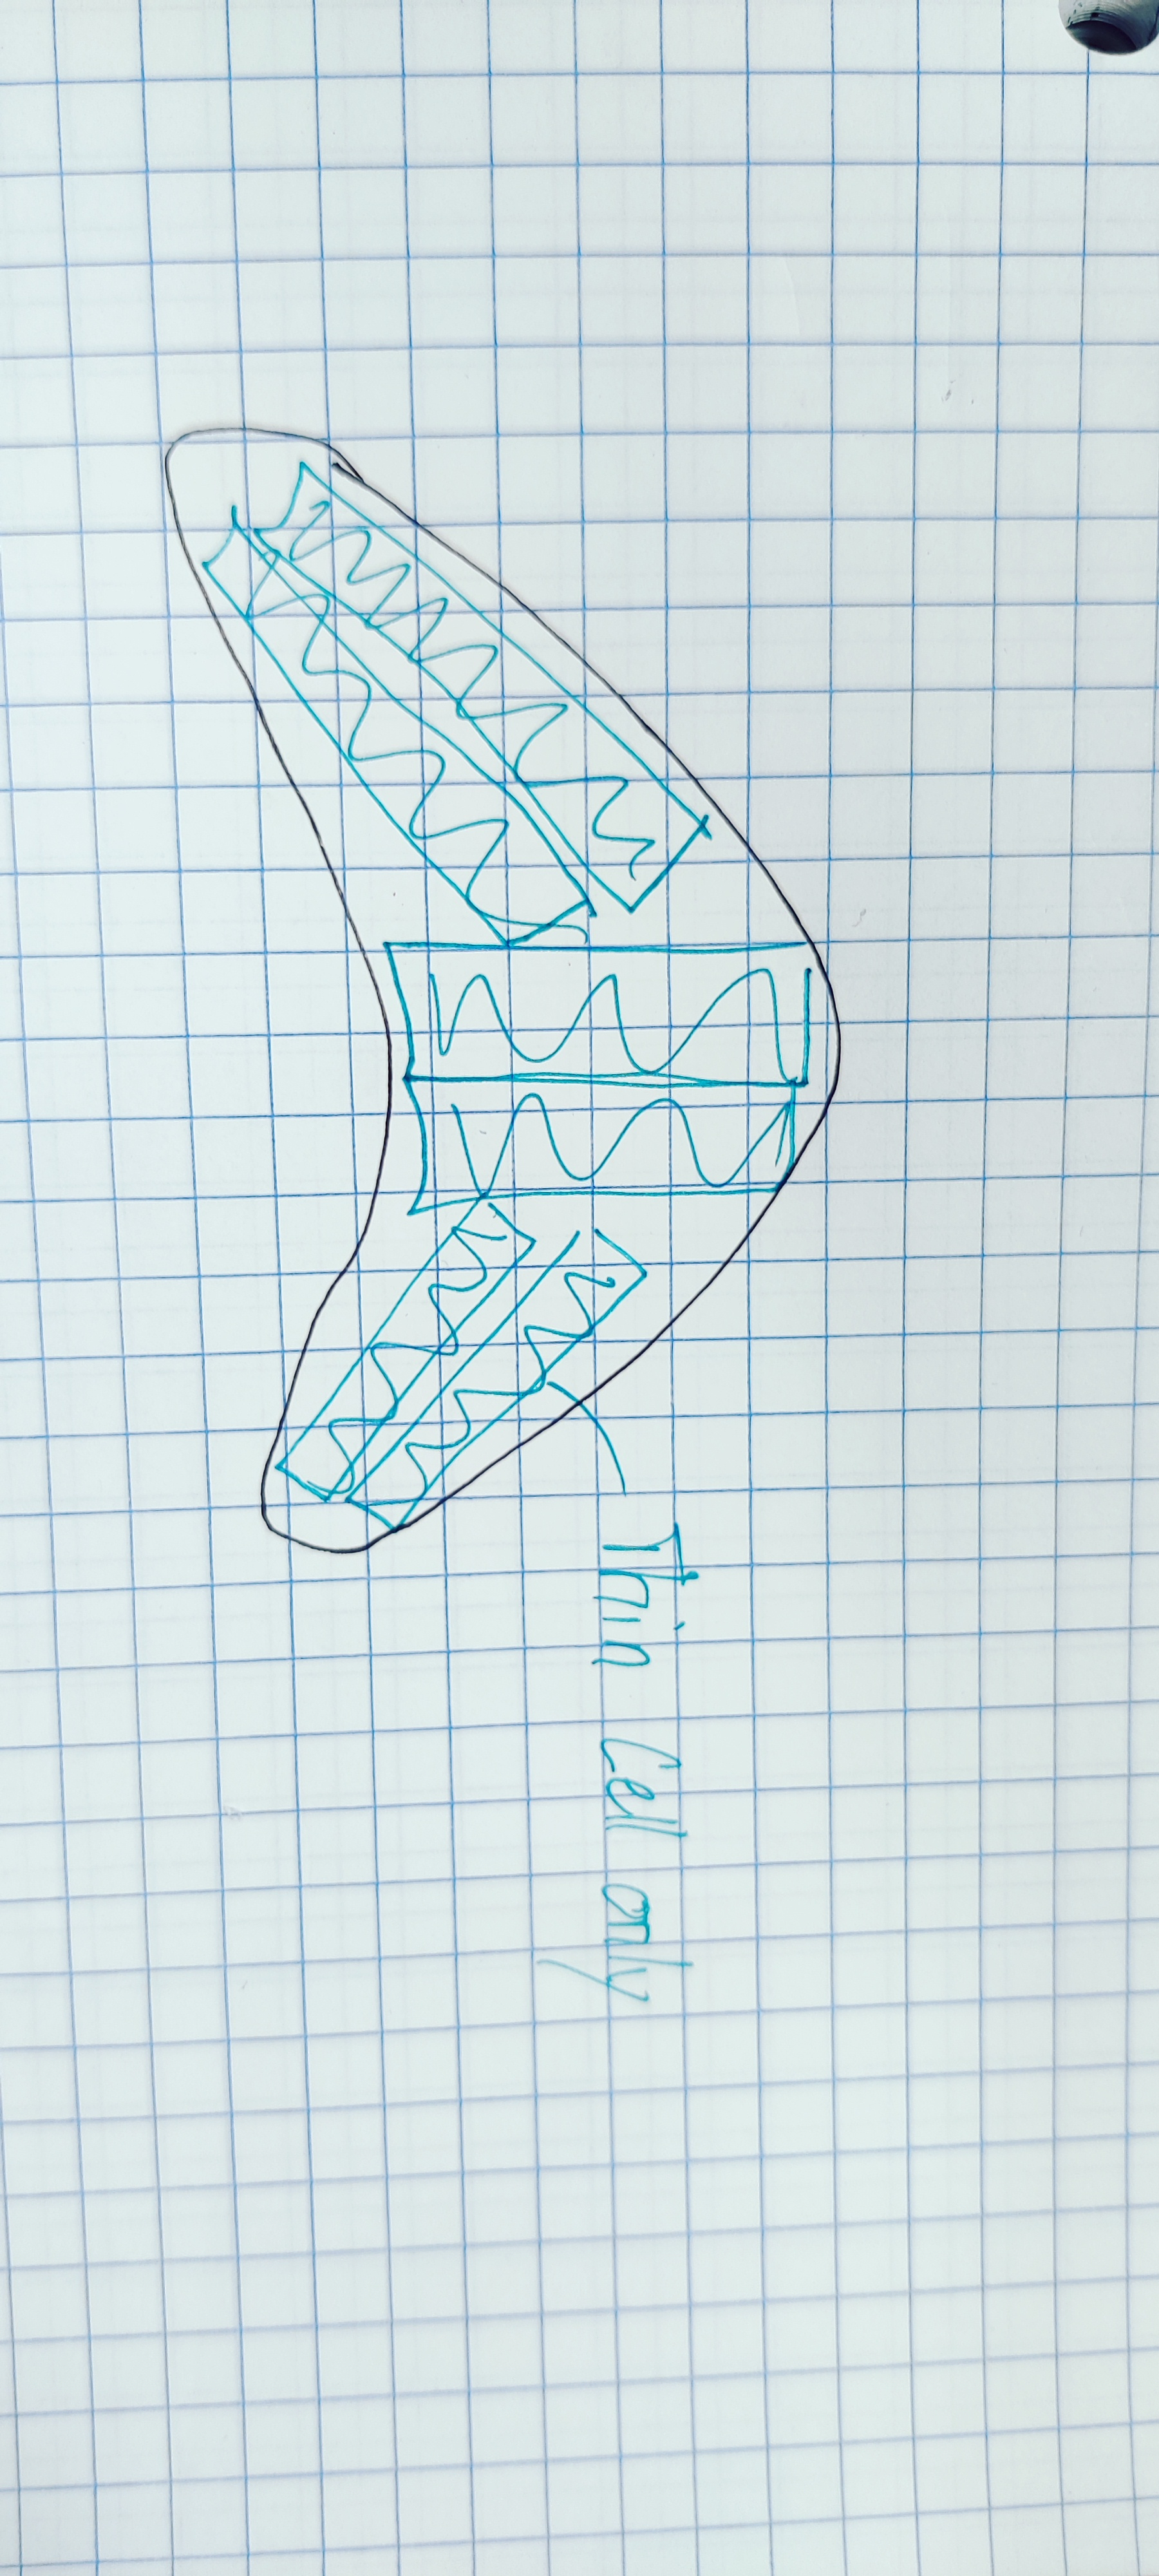 Thin Cell only